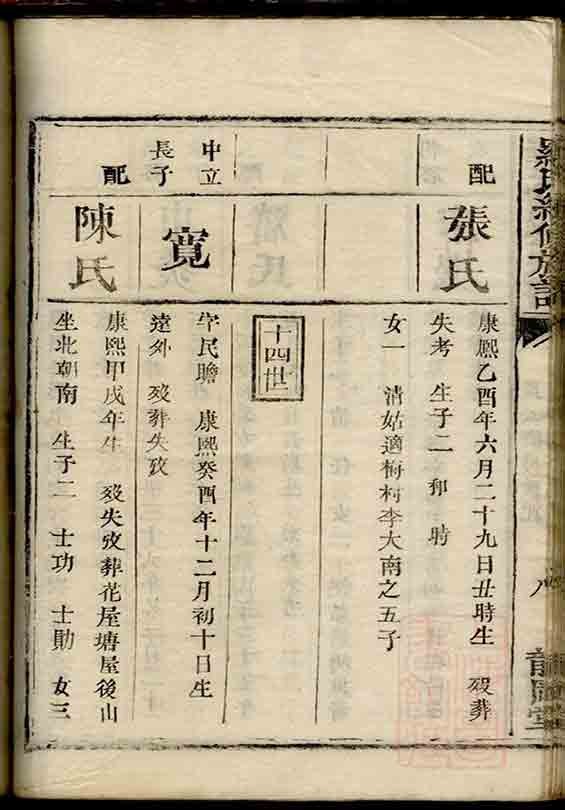 羅氏續修族譜
八
配
張氏
康熙乙酉年六月二十九日丑時生 歿葬
失考 生子二 時
女一 清姑適梅村李大南之五子
十四世
中立
長子
寬
字民瞻 康熙癸酉年十二月初十日生
遠外 歿葬失攷
配
陳氏
康熙甲戌年生 歿失攷葬花屋塘屋後山
坐北朝南 生子二 士功 士勛 女三